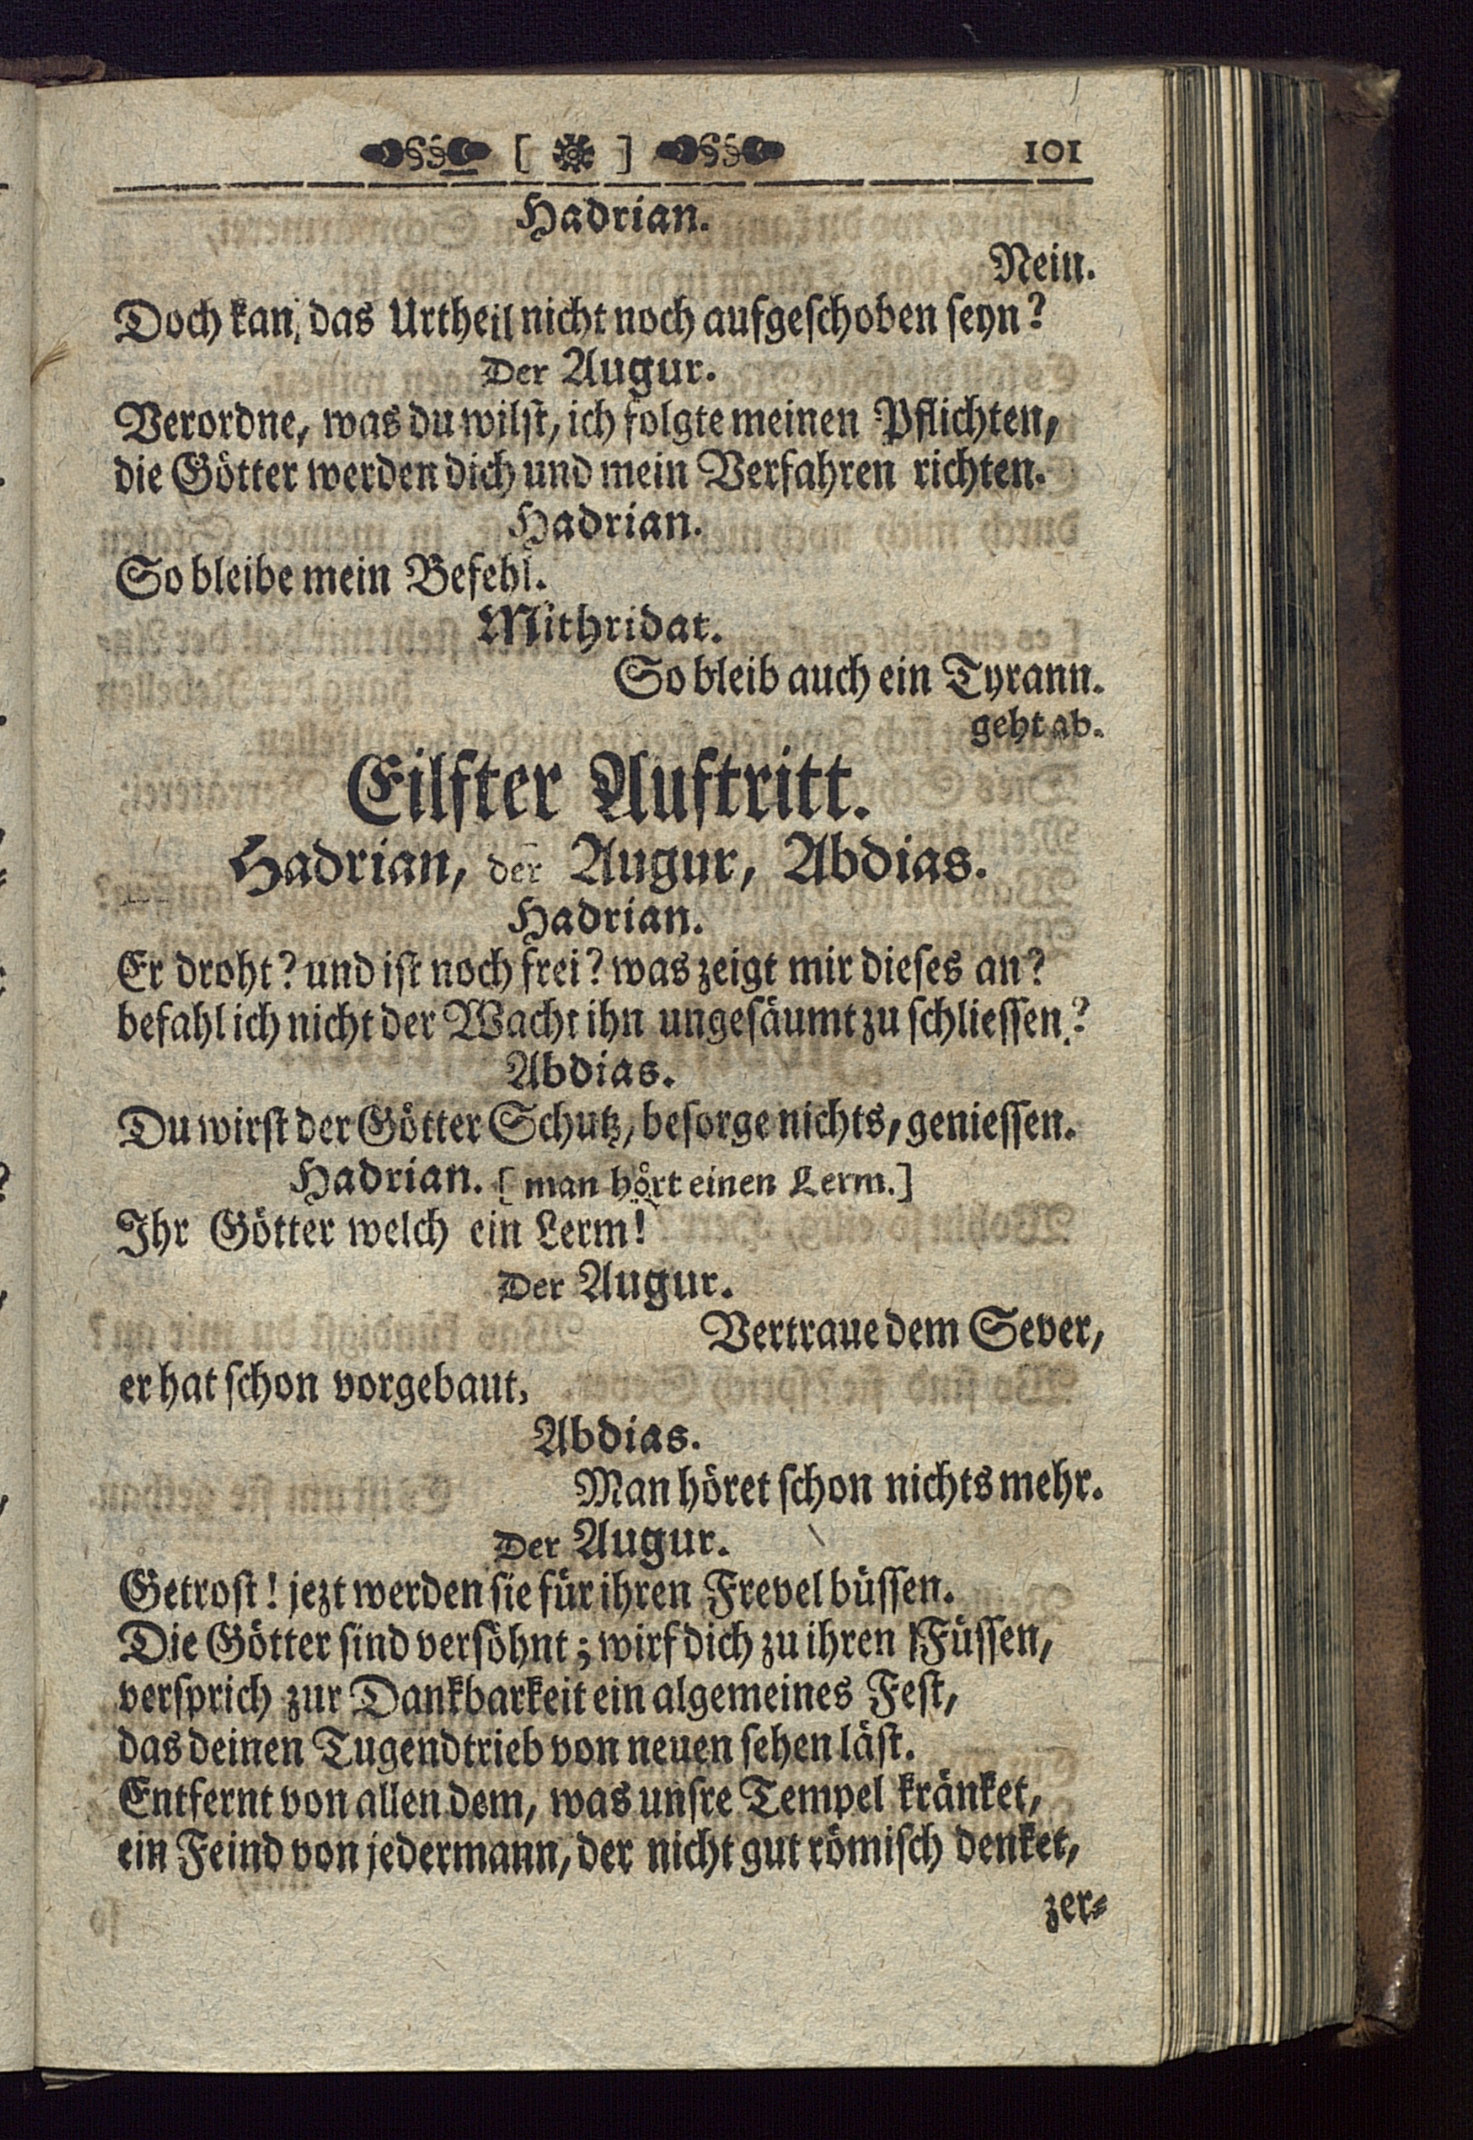 [ ] 101
Hadrian.
Nein.
Doch kan, das Urtheil nicht noch aufgeschoben seyn?
Der Augur.
Verordne, was du wilst, ich folgte meinen Pflichten,
die Götter werden dich und mein Verfahren richten.
Hadrian.
So bleibe mein Befehl.
Mithridat.
So bleib auch ein Tyrann.
geht ab.
Eilfter Auftritt.
Hadrian, der Augur, Abdias.
Hadrian.
Er droht? und ist noch frei? was zeigt mir dieses an?
befahl ich nicht der Wacht ihn ungesäumt zu schliessen?
Abdias.
Du wirst der Götter Schutz, besorge nichts, geniessen.
Hadrian. [ man hört einen Lerm.]
Ihr Götter welch ein Lerm!
Der Augur.
Vertraue dem Sever,
er hat schon vorgebaut,
Abdias.
Man höret schon nichts mehr.
Der Augur.
Getrost! jezt werden sie für ihren Frevel büssen.
Die Götter sind versöhnt; wirf dich zu ihren Füssen,
versprich zur Dankbarkeit ein algemeines Fest,
das deinen Tugendtrieb von neuen sehen läst.
Entfernt von allen dem, was unsre Tempel kränket,
ein Feind von jedermann, der nicht gut römisch denket,
zer-